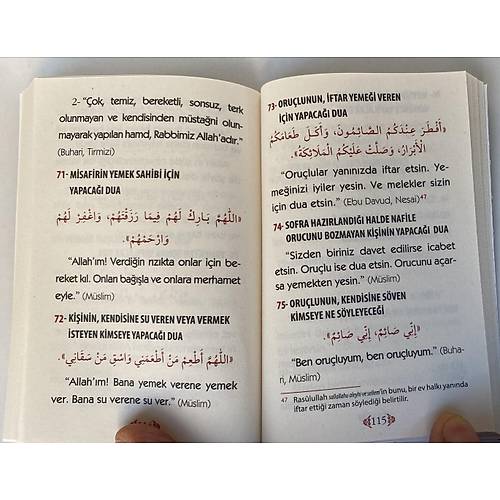 2- “Çok, temiz, bereketli, sonsuz, terk
olunmayan ve kendisinden müstağni olun-
mayarak yapılan hamd, Rabbimiz Allah'adır.”
(Buhari, Tirmizi)
71- MİSAFİRİN YEMEK SAHİBİ İÇİN
YAPACAĞI DUA
«اللَّهُمَّ بَارِكْ لَهُمْ فِيمَا رَزَقْتَهُمْ، وَاغْفِرْ لَهُمْ
وَارْحَمْهُمْ».
“Allah'ım! Verdiğin rızıkta onlar için be-
reket kıl. Onları bağışla ve onlara merhamet
eyle.” (Müslim)
72- KİŞİNİN, KENDİSİNE SU VEREN VEYA VERMEK
İSTEYEN KİMSEYE YAPACAĞI DUA
«اللَّهُمَّ أَطْعِمْ مَنْ أَطْعَمَنِي وَاسْقِ مَنْ سَقَانِي».
“Allah'ım! Bana yemek verene yemek
ver. Bana su verene su ver.” (Müslim)
73- ORUÇLUNUN, İFTAR YEMEĞİ VEREN
İÇİN YAPACAĞI DUA
«أَفْطَرَ عِنْدَكُمُ الصَّائِمُونَ، وَأَكَلَ طَعَامَكُمُ
الْأَبْرَارُ، وَصَلَّتْ عَلَيْكُمُ الْمَلَائِكَةُ».
“Oruçlular yanınızda iftar etsin. Ye-
meğinizi iyiler yesin. Ve melekler sizin
için dua etsin.” (Ebu Davud, Nesai)47
74- SOFRA HAZIRLANDIĞI HALDE NAFİLE
ORUCUNU BOZMAYAN KİŞİNİN YAPACAĞI DUA
“Sizden biriniz davet edilirse icabet
etsin. Oruçlu ise dua etsin. Orucunu açar-
sa yemekten yesin.” (Müslim)
75- ORUÇLUNUN, KENDİSİNE SÖVEN
KİMSEYE NE SÖYLEYECEĞİ
«إِنِّي صَائِمٌ، إِنِّي صَائِمٌ».
“Ben oruçluyum, ben oruçluyum.” (Buha-
ri, Müslim)
47 Rasûlullah sallallahu aleyhi ve sellem'in bunu, bir ev halkı yanında
iftar ettiği zaman söylediği belirtilir.
115